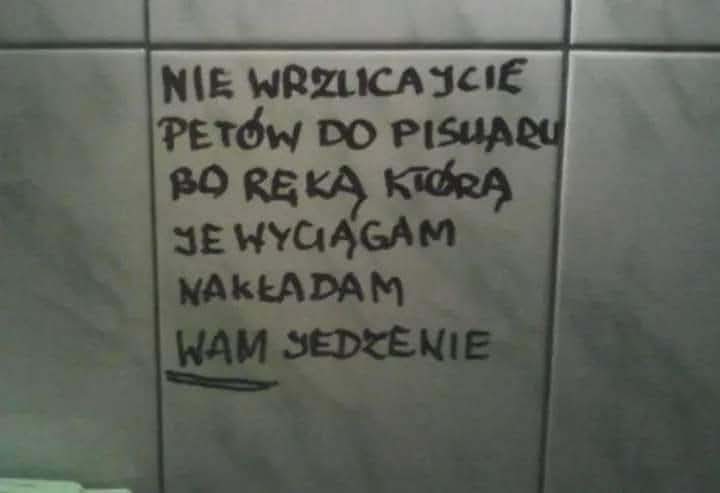 NIE WRZUCAJCIE
PETÓW DO PISUARU
BO RĘKĄ KTÓRĄ
JE WYCIĄGAM
NAKŁADAM
WAM JEDZENIE